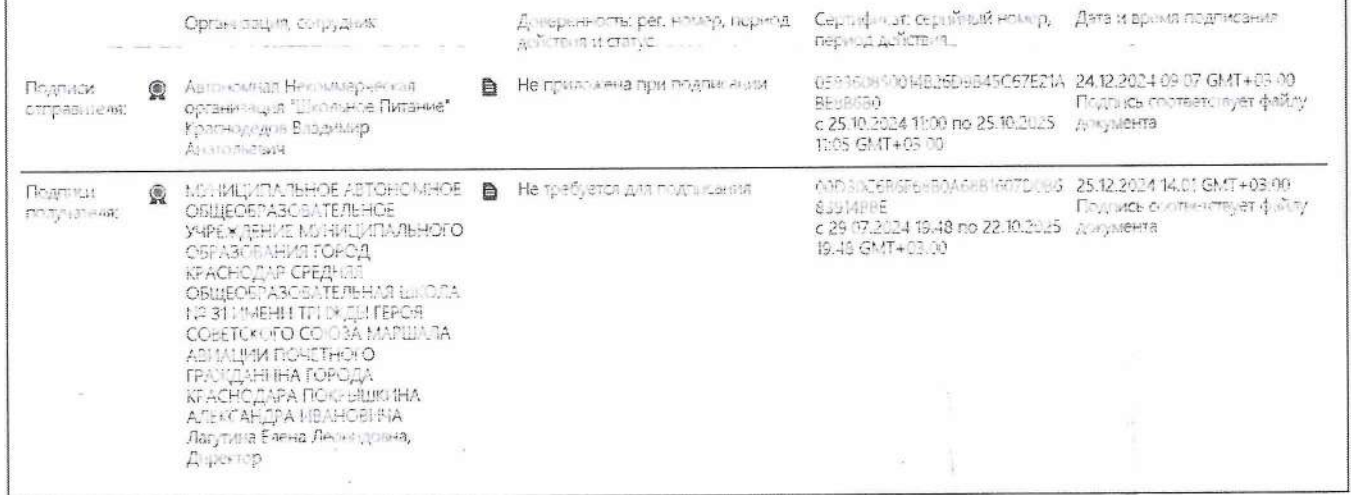 Организация, сотрудник
Доверенность: рег. номер, период действия и статус
Сертификат: серийный номер, период действия
Дата и время подписания
Подписи отправителя:
Автономная Некоммерческая
организация "Школьное Питание"
Краснодедов Владимир
Анатольевич
Не приложена при подписании
с 25.10.2024 11:00 по 25.10.2025
11:05 GMT+03:00
24.12.2024 09:07 GMT+03:00
Подпись соответствует файлу
документа
Подписи получателя:
МУНИЦИПАЛЬНОЕ АВТОНОМНОЕ
ОБЩЕОБРАЗОВАТЕЛЬНОЕ
УЧРЕЖДЕНИЕ МУНИЦИПАЛЬНОГО
ОБРАЗОВАНИЯ ГОРОД
КРАСНОДАР СРЕДНЯЯ
ОБЩЕОБРАЗОВАТЕЛЬНАЯ ШКОЛА
№ 31 ИМЕНИ ТРИЖДЫ ГЕРОЯ
СОВЕТСКОГО СОЮЗА МАРШАЛА
АВИАЦИИ ПОЧЕТНОГО
ГРАЖДАНИНА ГОРОДА
КРАСНОДАРА ПОКРЫШКИНА
АЛЕКСАНДРА ИВАНОВИЧА
Лагутина Елена Леонидовна,
Директор
Не требуется для подписания
83914BBE
с 29.07.2024 19:48 по 22.10.2025
19:48 GMT+03:00
25.12.2024 14:01 GMT+03:00
Подпись соответствует файлу
документа